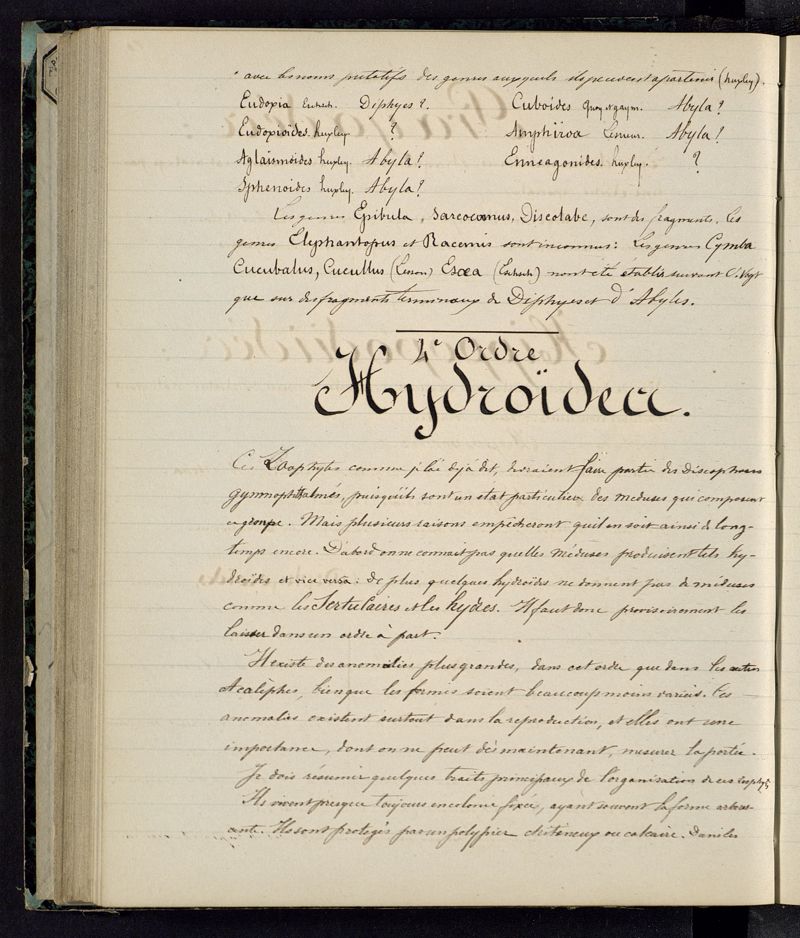 avec les noms putatifs des genres auxquels ils peuvent apartenir (huxley).
Eudoxia Eschsch. Diphyes? Cuboides Quoy et gaym. Abyla?
Eudoxioides. huxley ? Amphiroa Lesueur. Abyla?
Aglaismoides huxley. Abyla? Enneagonides. huxley. ?
Sphenoides huxley. Abyla?
Les genres Epibula, Sarcoconus, Discolabe, sont des fragments. Les
genres Elephantopus et Racemis sont inconnus: Les genres Cymba
Cucubalus, Cucullus, (Lesson) Esæa (Eschsch) n'ont été établis suivant C. Vogt
que sur des fragments terminaux de Diphyes et d'Abyles.
4e Ordre
Hydroïdea.
Ces Zoophytes comme je l'ai déjà dit, devraient faire partie des discophores
gymnophthalmés, puisqu'ils sont un état particulieux des meduses qui composent
ce groupe. Mais plusieurs raisons empêcheront qu'il en soit ainsi de long-
temps encore. D'abord on ne connait pas quelles méduses produisent tels hy-
droïdes et vice versa: de plus quelques hydroïdes ne donnent pas de méduses
comme les Sertulaires et les hydres. Il faut donc provisoirement les
laisser dans un ordre à part.
Il existe des anomalies plus grandes, dans cet ordre que dans les autres
Acalèphes, bien que les formes soient beaucoup moins variées. Ces
anomalies existent surtout dans la reproduction, et elles ont une
importance, dont on ne peut dès maintenant, mesurer la portée.
Je dois résumer quelques traits principaux de l'organisation de ces zoophytes
Ils vivent presque toujours en colonie fixées, ayant souvent la forme arbores-
cente. Ils sont protégés par un polypier chitineux ou calcaire. Dans les